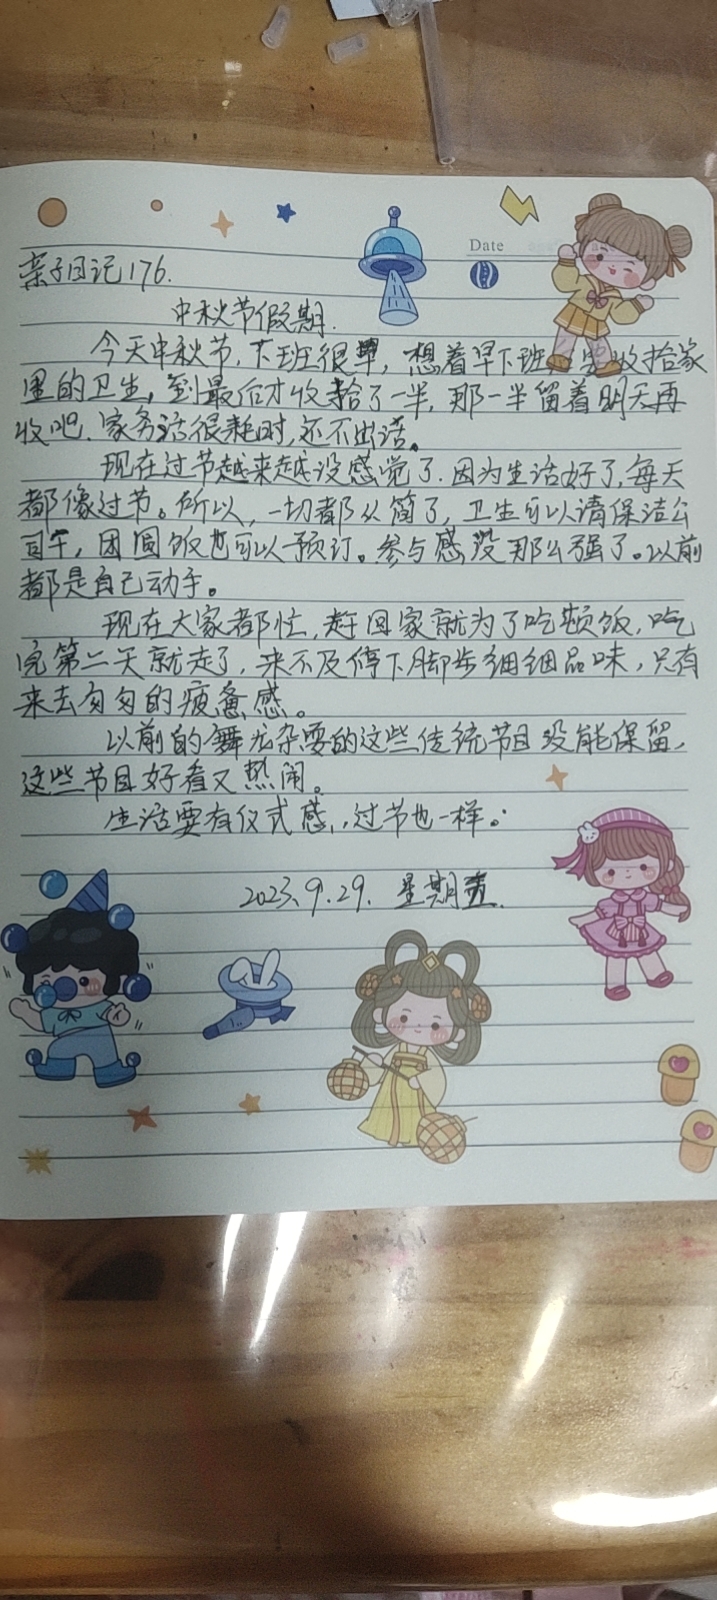 Date
亲子日记176.
中秋节假期.
今天中秋节,下班很早,想着早下班 收拾家
里的卫生,到最后才收拾了一半,那一半留着明天再
收吧.家务活很耗时,还不出活。
现在过节越来越没感觉了.因为生活好了,每天
都像过节。所以,一切都从简了,卫生可以请保洁公
司干,团圆饭也可以预订。参与感没那么强了。以前
都是自己动手。
现在大家都忙,赶回家就为了吃顿饭,吃
完第二天就走了,来不及停下脚步细细品味,只有
来去匆匆的疲惫感。
以前的舞龙杂耍的这些传统节目没能保留,
这些节目好看又热闹。
生活要有仪式感,过节也一样。
2023.9.29. 星期五.